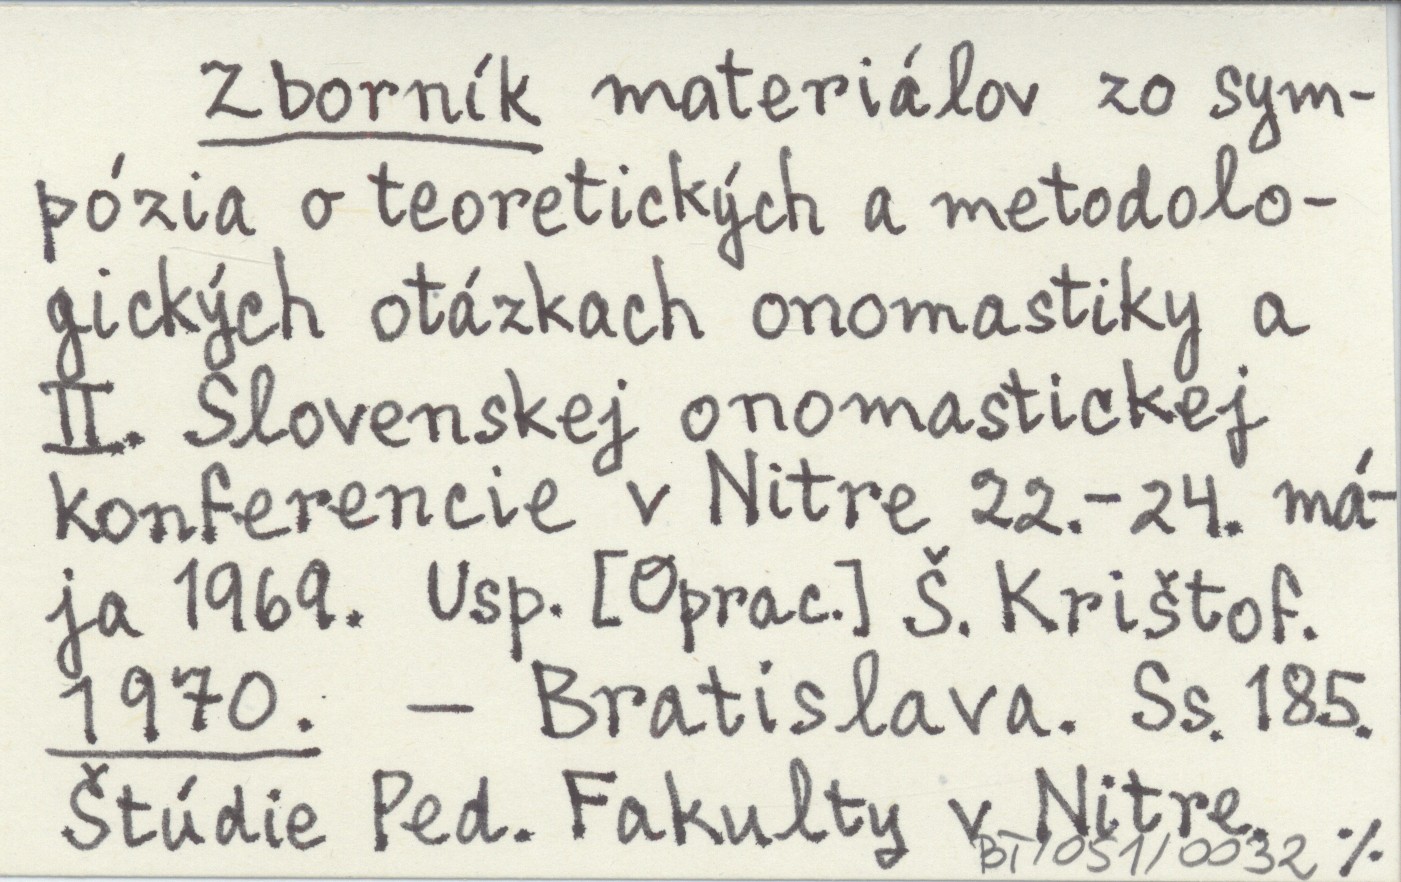 Zborník materiálov zo sym-
pózia o teoretických a metodolo-
gických otázkach onomastiky a
II. Slovenskej onomastickej
konferencie v Nitre 22.-24. má-
ja 1969. Usp. [Oprac.] Š. Krištof.
1970. — Bratislava. Ss. 185.
Štúdie Ped. Fakulty v Nitre.
BT/051/0032 ·/.